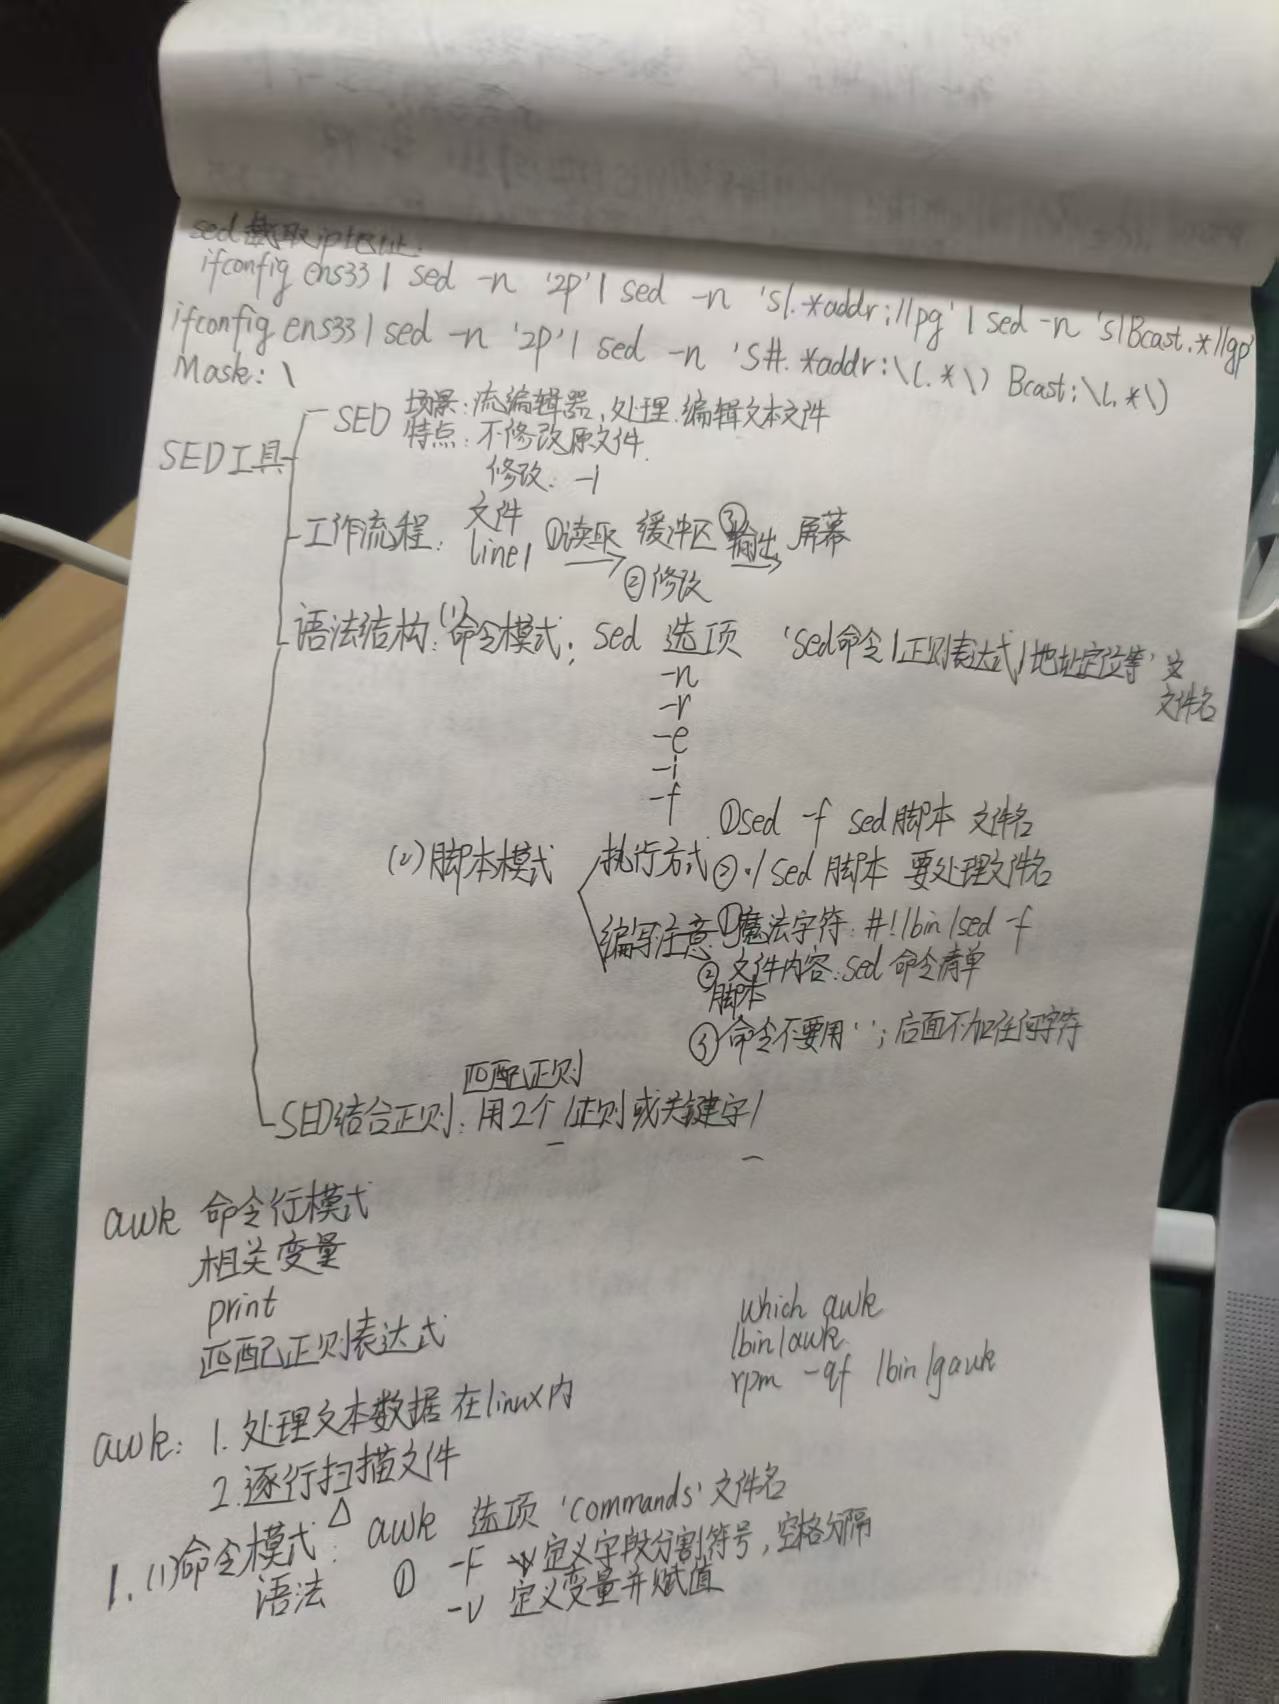 sed截取ip地址:
ifconfig ens33 | sed -n '2p' | sed -n 's/.*addr://pg' | sed -n 's/Bcast.*//gp'
ifconfig ens33 | sed -n '2p' | sed -n 's#.*addr:\(.*\) Bcast:\(.*\)
Mask: \
SED工具
SED 场景: 流编辑器, 处理.编辑文本文件
特点: 不修改原文件.
修改: -i
工作流程: 文件 line1 ①读取 缓冲区 ③输出 屏幕
②修改
语法结构: (1)命令模式: sed 选项 'sed命令/正则表达式/地址定位等'
文件名
-n
-r
-e
-i
-f
(2)脚本模式 执行方式 ①sed -f sed脚本 文件名
②./sed 脚本 要处理文件名
编写注意 ①魔法字符: #!/bin/sed -f
②文件内容: sed 命令清单
脚本
③命令不要用' '; 后面不加任何字符
匹配正则
SED结合正则: 用2个 /正则或关键字/
awk 命令行模式
相关变量
print
匹配正则表达式
which awk
/bin/awk
rpm -qf /bin/gawk
awk: 1. 处理文本数据 在linux内
2. 逐行扫描文件
1. (1)命令模式: awk 选项 'commands' 文件名
语法 ① -F 定义字段分割符号, 空格分隔
-v 定义变量并赋值